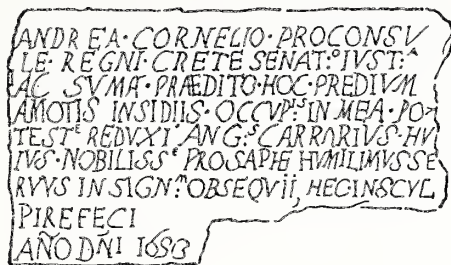 ANDREA·CORNELIO·PROCONSV
LE·REGNI·CRETE SENAT:º IVST:ᴬ
AC SVMA·PRÆDITO·HOC·PREDIVM
AMOTIS INSIDIIS·OCCVP:ˢ IN MEA·PO
TESTᴱ REDVXI ANG:ˢ CARRARIVS·HV
IVS·NOBILISSᴱ PROSAPIÆ HVMILIMVS SE
RVVS IN SIGN:ᵐ OBSEQVII, HEC INSCVL
PI REFECI
AÑO DÑI